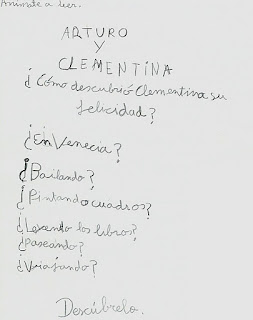 Anímate a leer.
ARTURO
Y
CLEMENTINA
¿Cómo descubrió Clementina su
felicidad?
¿En Venecia?
¿Bailando?
¿Pintando cuadros?
¿Leyendo los libros?
¿Paseando?
¿Viajando?
Descúbrelo.